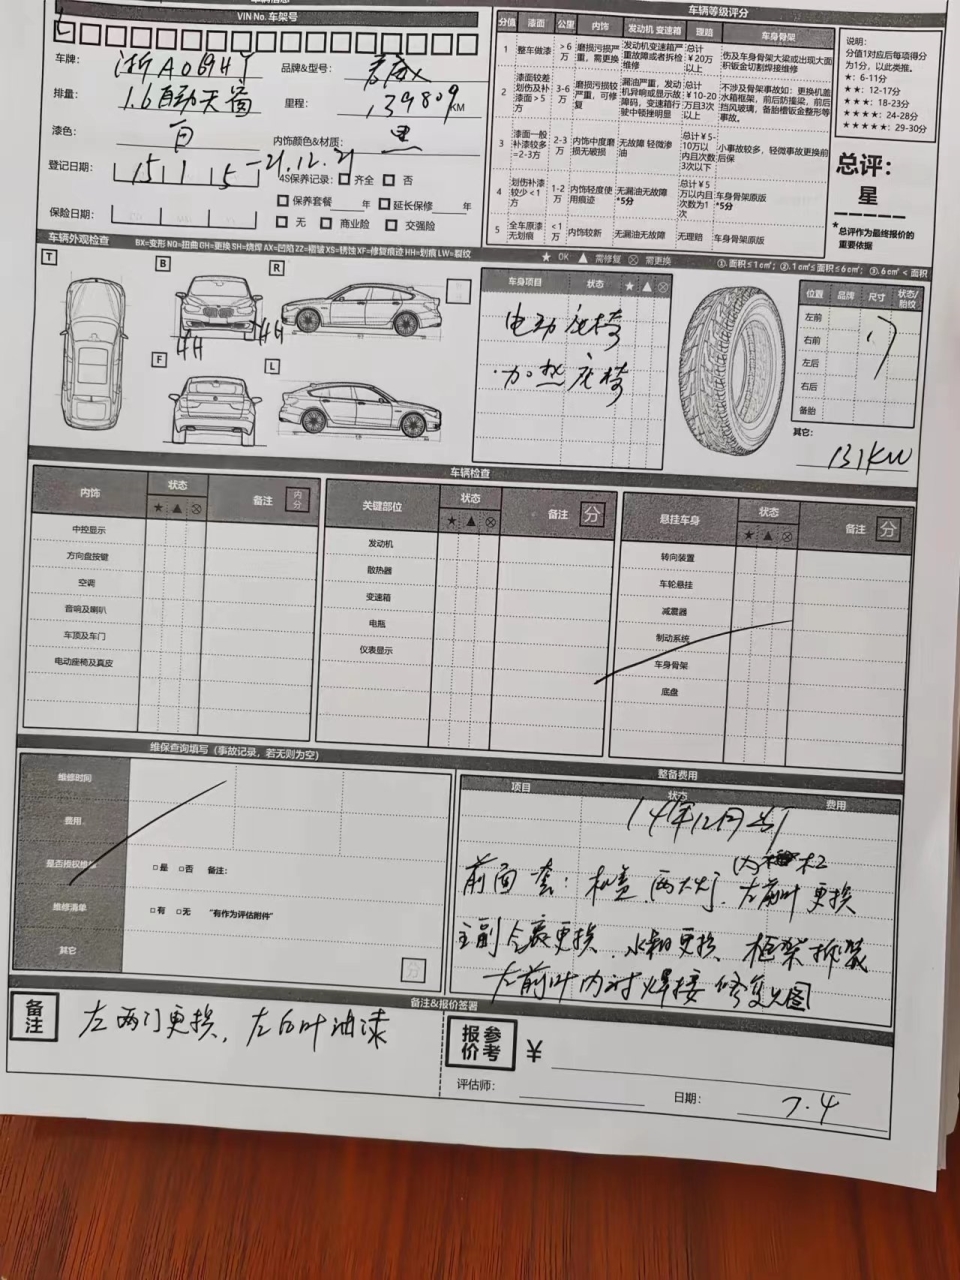 车辆信息
VIN No. 车架号
L
车牌:
品牌&型号:
排量: 1.6自动天窗
里程: 139809 KM
漆色: 白
内饰颜色&材质: 黑
登记日期: 15 1 5 -21.12.21
4S保养记录: 齐全 否
保养套餐 年 延长保修 年
保险日期:
无 商业险 交强险
车辆等级评分
分值 漆面 公里 内饰 发动机 变速箱 理赔 车身骨架
1 整车做漆 >6万 磨损污损严重，需更换 发动机变速箱严重故障或者拆检维修 总计¥20万以上 伤及车身骨架大梁或出现大面积钣金切割焊接维修
2 漆面较差划伤及补漆面>5方 3-6万 磨损污损较严重，可修复 漏油严重，发动机异响或显示故障码，变速箱行驶中顿挫明显 总计¥10-20万且3次以上 不涉及骨架事故如：更换机盖水箱框架，前后防撞梁，前后挡风玻璃，备胎槽钣金整形等事故。
3 漆面一般补漆较多=2-3方 2-3万 内饰中度磨损无破损 无故障 轻微渗油 总计¥5-10万以内且次数3次以下 小事故较多，轻微事故更换前后保
4 划伤补漆较少<1方 1-2万 内饰轻度使用痕迹 无漏油无故障*5分 总计¥5万以内且次数为1次 车身骨架原版*5分
5 全车原漆无划痕 <1万 内饰较新 无漏油无故障 无理赔 车身骨架原版
说明:
分值1对应后每项得分为1分，以此类推。
★: 6-11分
★★: 12-17分
★★★: 18-23分
★★★★: 24-28分
★★★★★: 29-30分
总评:
星
*总评作为最终报价的重要依据
车辆外观检查
BX=变形 NQ=扭曲 GH=更换 SH=烧焊 AX=凹陷 ZZ=褶皱 XS=锈蚀 XF=修复痕迹 HH=划痕 LW=裂纹
★ OK ▲ 需修复 ⊗ 需更换
①. 面积≤1c㎡; ②. 1c㎡≤面积≤6c㎡; ③. 6c㎡<面积
T
B
R
HH
HH
F
L
车身项目 状态 ★ ▲ ⊗
电动座椅
加热座椅
位置 品牌 尺寸 状态/胎纹
左前
右前
左后
右后
备胎
17
其它:
131KW
车辆检查
内饰 状态 ★ ▲ ⊗ 备注 内分
中控显示
方向盘按键
空调
音响及喇叭
车顶及车门
电动座椅及真皮
关键部位 状态 ★ ▲ ⊗ 备注 分
发动机
散热器
变速箱
电瓶
仪表显示
悬挂车身 状态 ★ ▲ ⊗ 备注 分
转向装置
车轮悬挂
减震器
制动系统
车身骨架
底盘
维保查询填写（事故记录，若无则为空）
维修时间
费用
是否授权维修
□是 □否 备注:
维修清单
□有 □无 "有作为评估附件"
其它
分
整备费用
项目 状态 费用
14年12月出厂
前面套: 机盖 两大灯 左前叶更换
主副气囊更换. 水箱更换. 框架拆装
左前叶内衬焊接修复见图
备注&报价签署
备注
左两门更换, 左后叶油漆
参考报价 ¥
评估师:
日期: 7.4